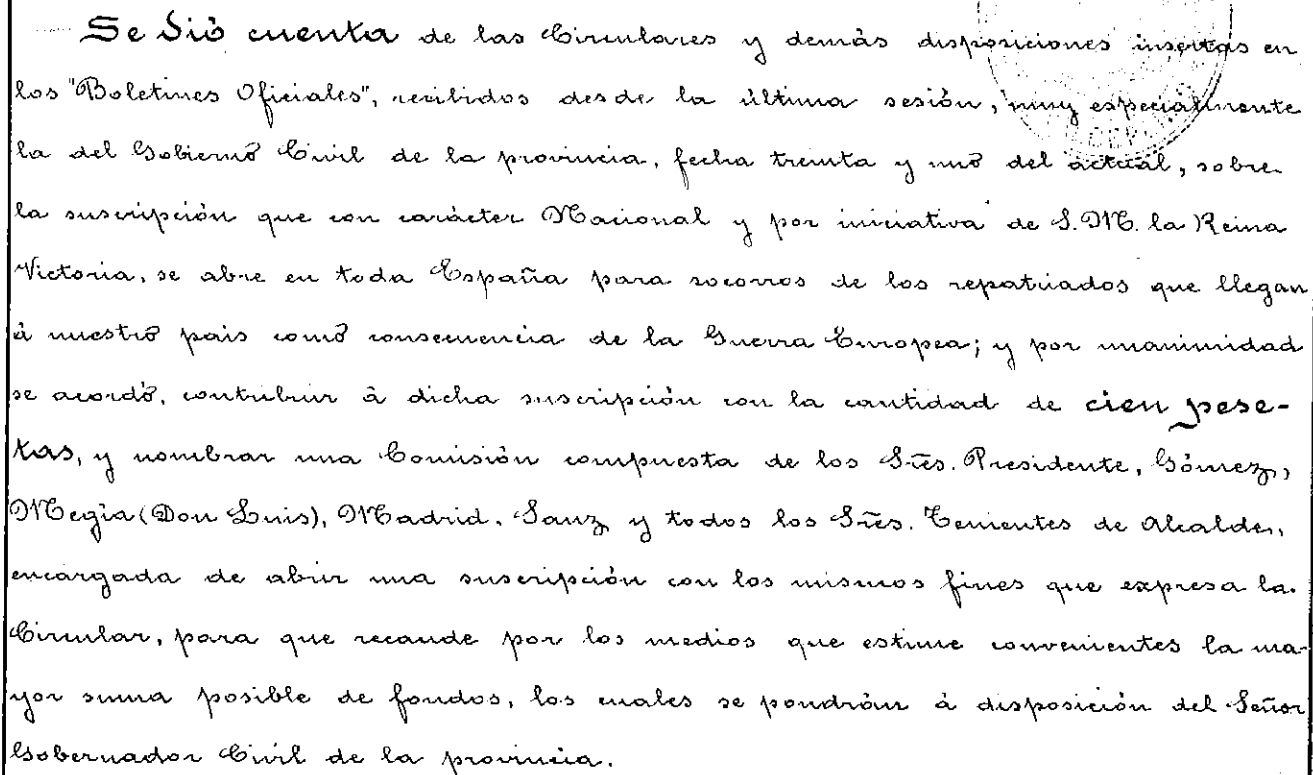 Se dió cuenta de las Circulares y demás disposiciones insertas en
los "Boletines Oficiales", recibidos desde la última sesión, muy especialmente
la del Gobierno Civil de la provincia, fecha treinta y uno del actual, sobre
la suscripción que con carácter Nacional y por iniciativa de S.M. la Reina
Victoria, se abre en toda España para socorros de los repatriados que llegan
á nuestro pais como consecuencia de la Guerra Europea; y por unanimidad
se acordó, contribuir á dicha suscripción con la cantidad de cien pese-
tas, y nombrar una Comisión compuesta de los Sres. Presidente, Gómez,
Megia (Don Luis), Madrid, Sanz y todos los Sres. Tenientes de Alcalde,
encargada de abrir una suscripción con los mismos fines que expresa la
Circular, para que recaude por los medios que estime convenientes la ma-
yor suma posible de fondos, los cuales se pondrán á disposición del Señor
Gobernador Civil de la provincia.